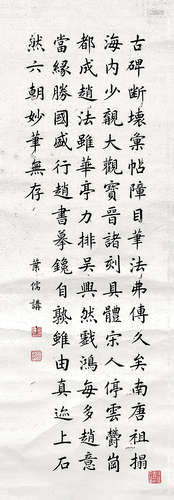 古碑斷壞彙帖障目筆法弗傳久矣南唐祖搨
海內少觀大觀寶晉諸刻具體宋人停雲欝岡
都成趙法雖華亭力排吳興然戲鴻每多趙意
當緣勝國盛行趙書摹鐫自孰雖由真迹上石
然六朝妙筆無存
葉儒講